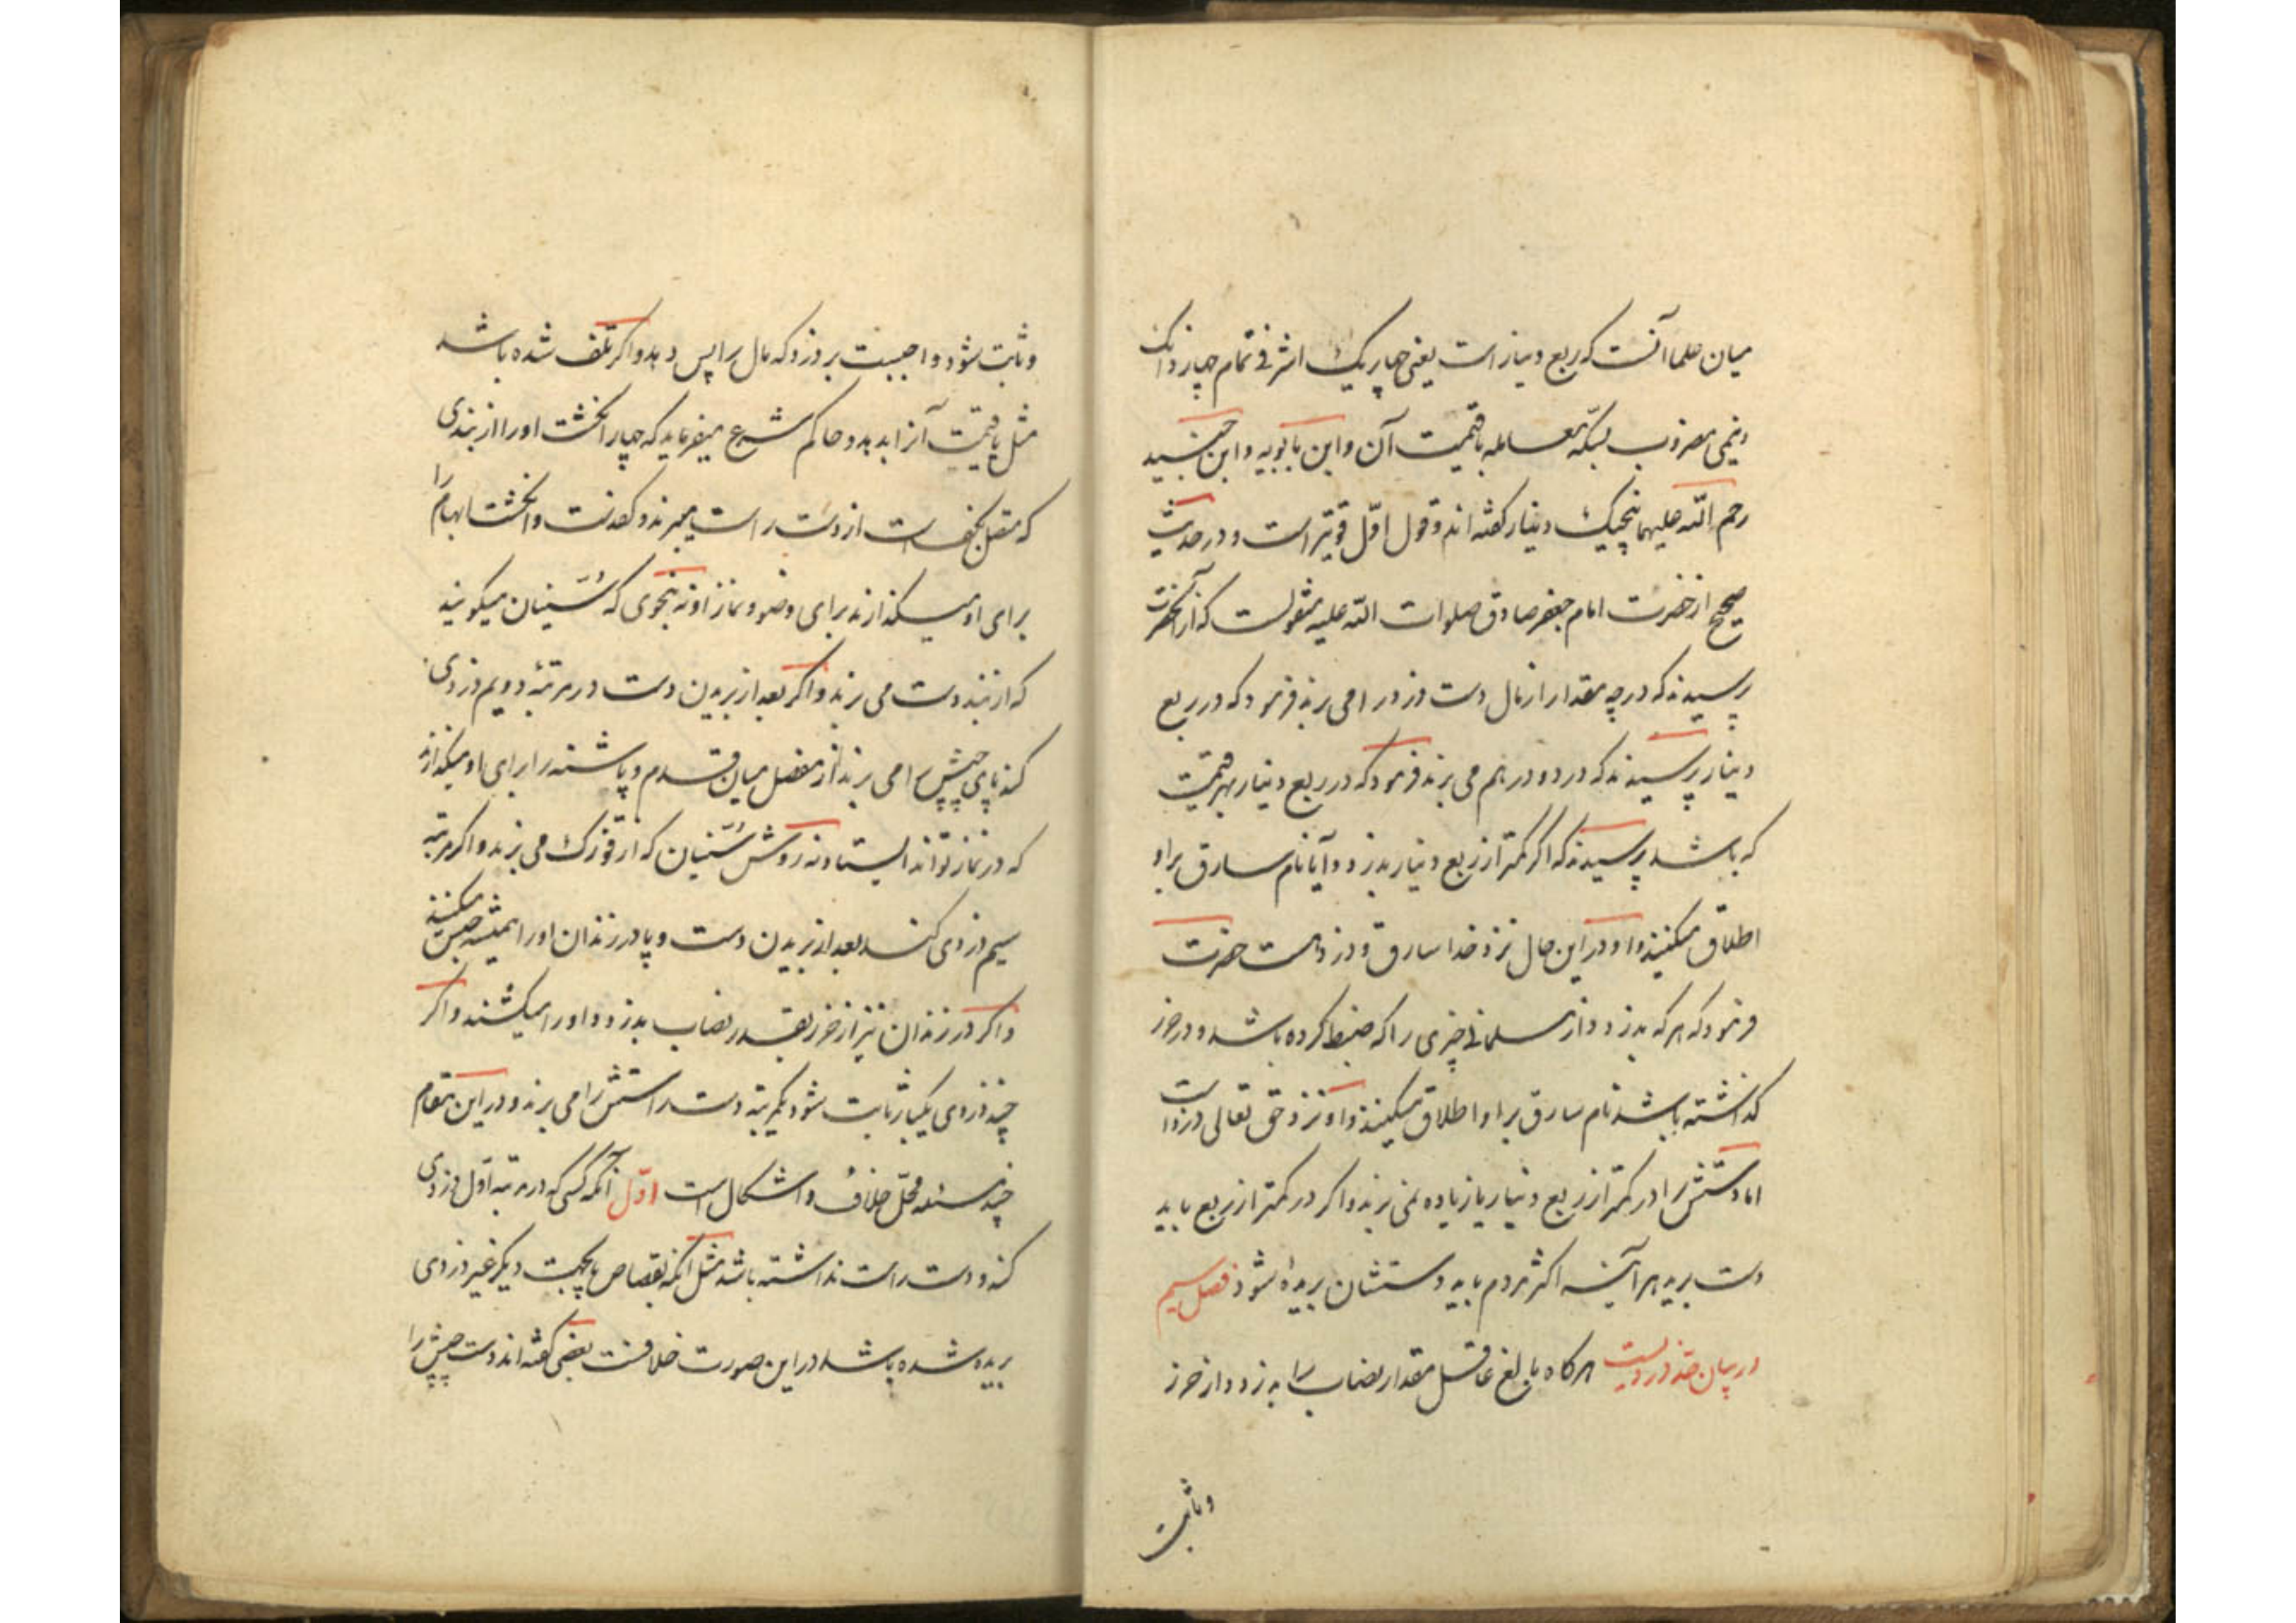 میان علما آنست که ربع دینار است یعنی چهار یک اشرفی تمام چهار دانک
و نیمی مضروب بسکّه معامله یا قیمت آن و ابن بابویه و ابن جنید
رحم اللّه علیهما پنجیک دینار گفته‌اند و قول اوّل قویتر است و در حدیث
صحیح از حضرت امام جعفر صادق صلوات اللّه علیه منقولست که از آنحضرت
پرسیدند که در چه مقدار از مال دست دزد را می برند فرمود که در ربع
دینار پرسیدند که در دو درهم می برند فرمود که در ربع دینار بهر قیمت
که باشد پرسیدند که اگر کمتر از ربع دینار بدزدد آیا نام سارق بر او
اطلاق میکنند و او در این حال نزد خدا سارق و دزد است حضرت
فرمود که هر که بدزدد از مسلمانی چیزی را که ضبط کرده باشد و در حرز
گذاشته باشد نام سارق بر او اطلاق میکنند و او نزد حق تعالی دزد است
اما دستش را در کمتر از ربع دینار یا زیاده نمی برند و اگر در کمتر از ربع باید
دست برید هر آینه اکثر مردم باید دستشان بریده شود فصل سیم
در بیان حدّ دزدیست هرگاه بالغ عاقل مقدار نصاب را بدزدد از حرز
و ثابت
و ثابت شود واجبست بر دزد که مال را پس دهد و اگر تلف شده باشد
مثل یا قیمت آنرا بدهد و حاکم شرع میفرماید که چهار انگشت او را از بندی
که متصل بکف است از دست راست میبرند و کف دست و انگشت ابهام را
برای او میگذارند برای وضو و نماز او نه بنحوی که سُنّیان میگویند
که از بند دست می برند و اگر بعد از بریدن دست در مرتبهٔ دویم دزدی
کند پای چپش را می برند از مفصل میان قدم و پاشنه را برای او میگذارند
که در نماز تواند ایستاد نه روش سُنّیان که از قوزک می برند و اگر مرتبه
سیم دزدی کند بعد از بریدن دست و پا در زندان او را همیشه حبس میکنند
و اگر در زندان نیز از حرز بقدر نصاب بدزدد او را میکشند و اگر
چند دزدی یکبار ثابت شود یکمرتبه دست راستش را می برند و در این مقام
چند مسئله محلّ خلاف و اشکال است اوّل آنکه کسی که در مرتبه اوّل دزدی
کند و دست راست نداشته باشد مثل آنکه بقصاص یا بجهت دیگر غیر دزدی
بریده شده باشد در این صورت خلافست بعضی گفته‌اند دست چپش را